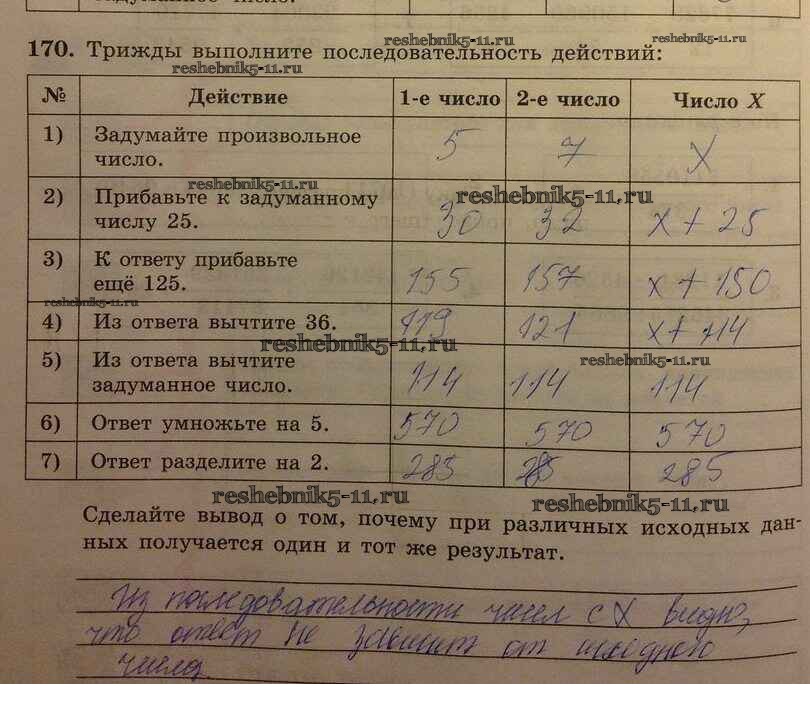 задуманное число.
170. Трижды выполните последовательность действий:
reshebnik5-11.ru
reshebnik5-11.ru
reshebnik5-11.ru
№ Действие 1-е число 2-е число Число X
1) Задумайте произвольное число. 5 7 X
reshebnik5-11.ru
reshebnik5-11.ru
2) Прибавьте к задуманному
числу 25. 30 32 x + 25
3) К ответу прибавьте
ещё 125. 155 157 x + 150
reshebnik5-11.ru
4) Из ответа вычтите 36. 119 121 x + 114
reshebnik5-11.ru
reshebnik5-11.ru
5) Из ответа вычтите
задуманное число. 114 114 114
6) Ответ умножьте на 5. 570 570 570
7) Ответ разделите на 2. 285 285 285
reshebnik5-11.ru
reshebnik5-11.ru
Сделайте вывод о том, почему при различных исходных дан-
ных получается один и тот же результат.
Из последовательности чисел с X видно,
что ответ не зависит от исходного
числа.